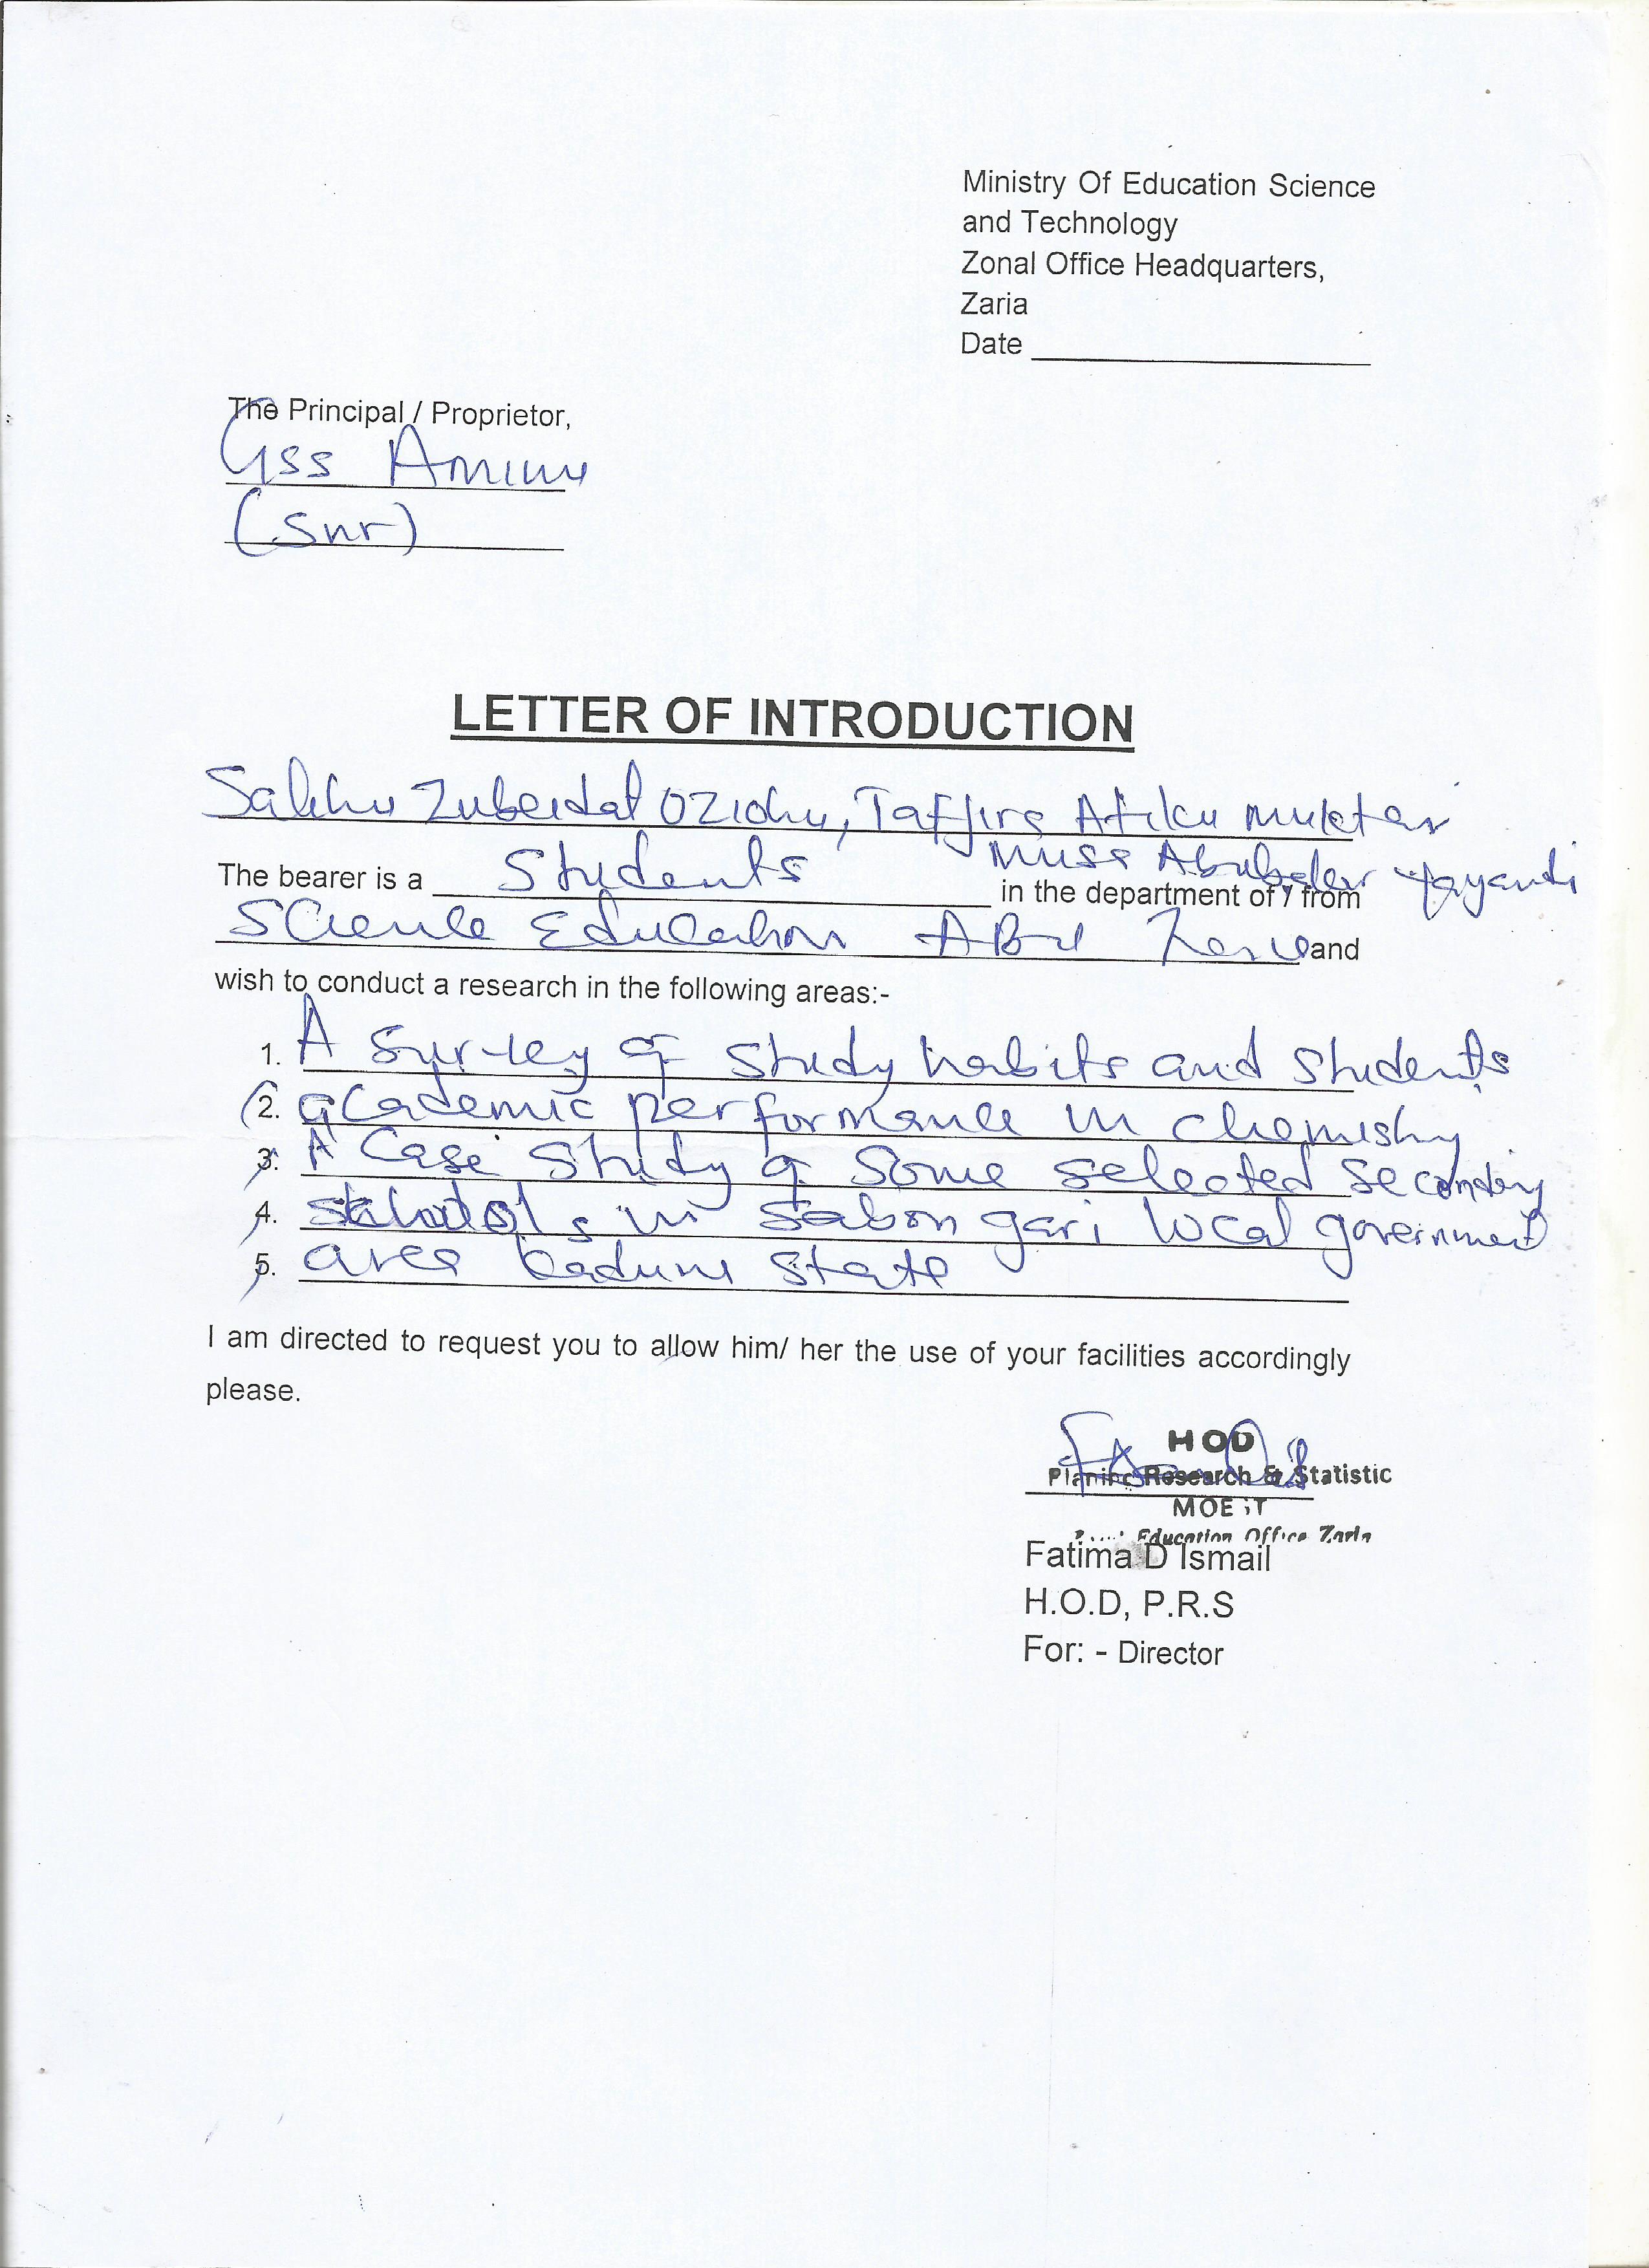 Ministry Of Education Science
and Technology
Zonal Office Headquarters,
Zaria
Date
The Principal / Proprietor,
GSS Aminu
(Snr)
LETTER OF INTRODUCTION
Salihu Zubeidat Oziohu, Taffire Atiku Muktar
Musa Abubakar Yayanti
The bearer is a Students in the department of / from
Science Education ABU Zaria and
wish to conduct a research in the following areas:-
1. A Survey of Study habits and Students
2. academic performance in chemistry
3. A Case Study of Some selected Secondary
4. schools in Sabon gari local government
5. area Kaduna State
I am directed to request you to allow him/ her the use of your facilities accordingly
please.
HOD
Planing Research & Statistic
MOE
Education Office Zaria
Fatima D Ismail
H.O.D, P.R.S
For: - Director